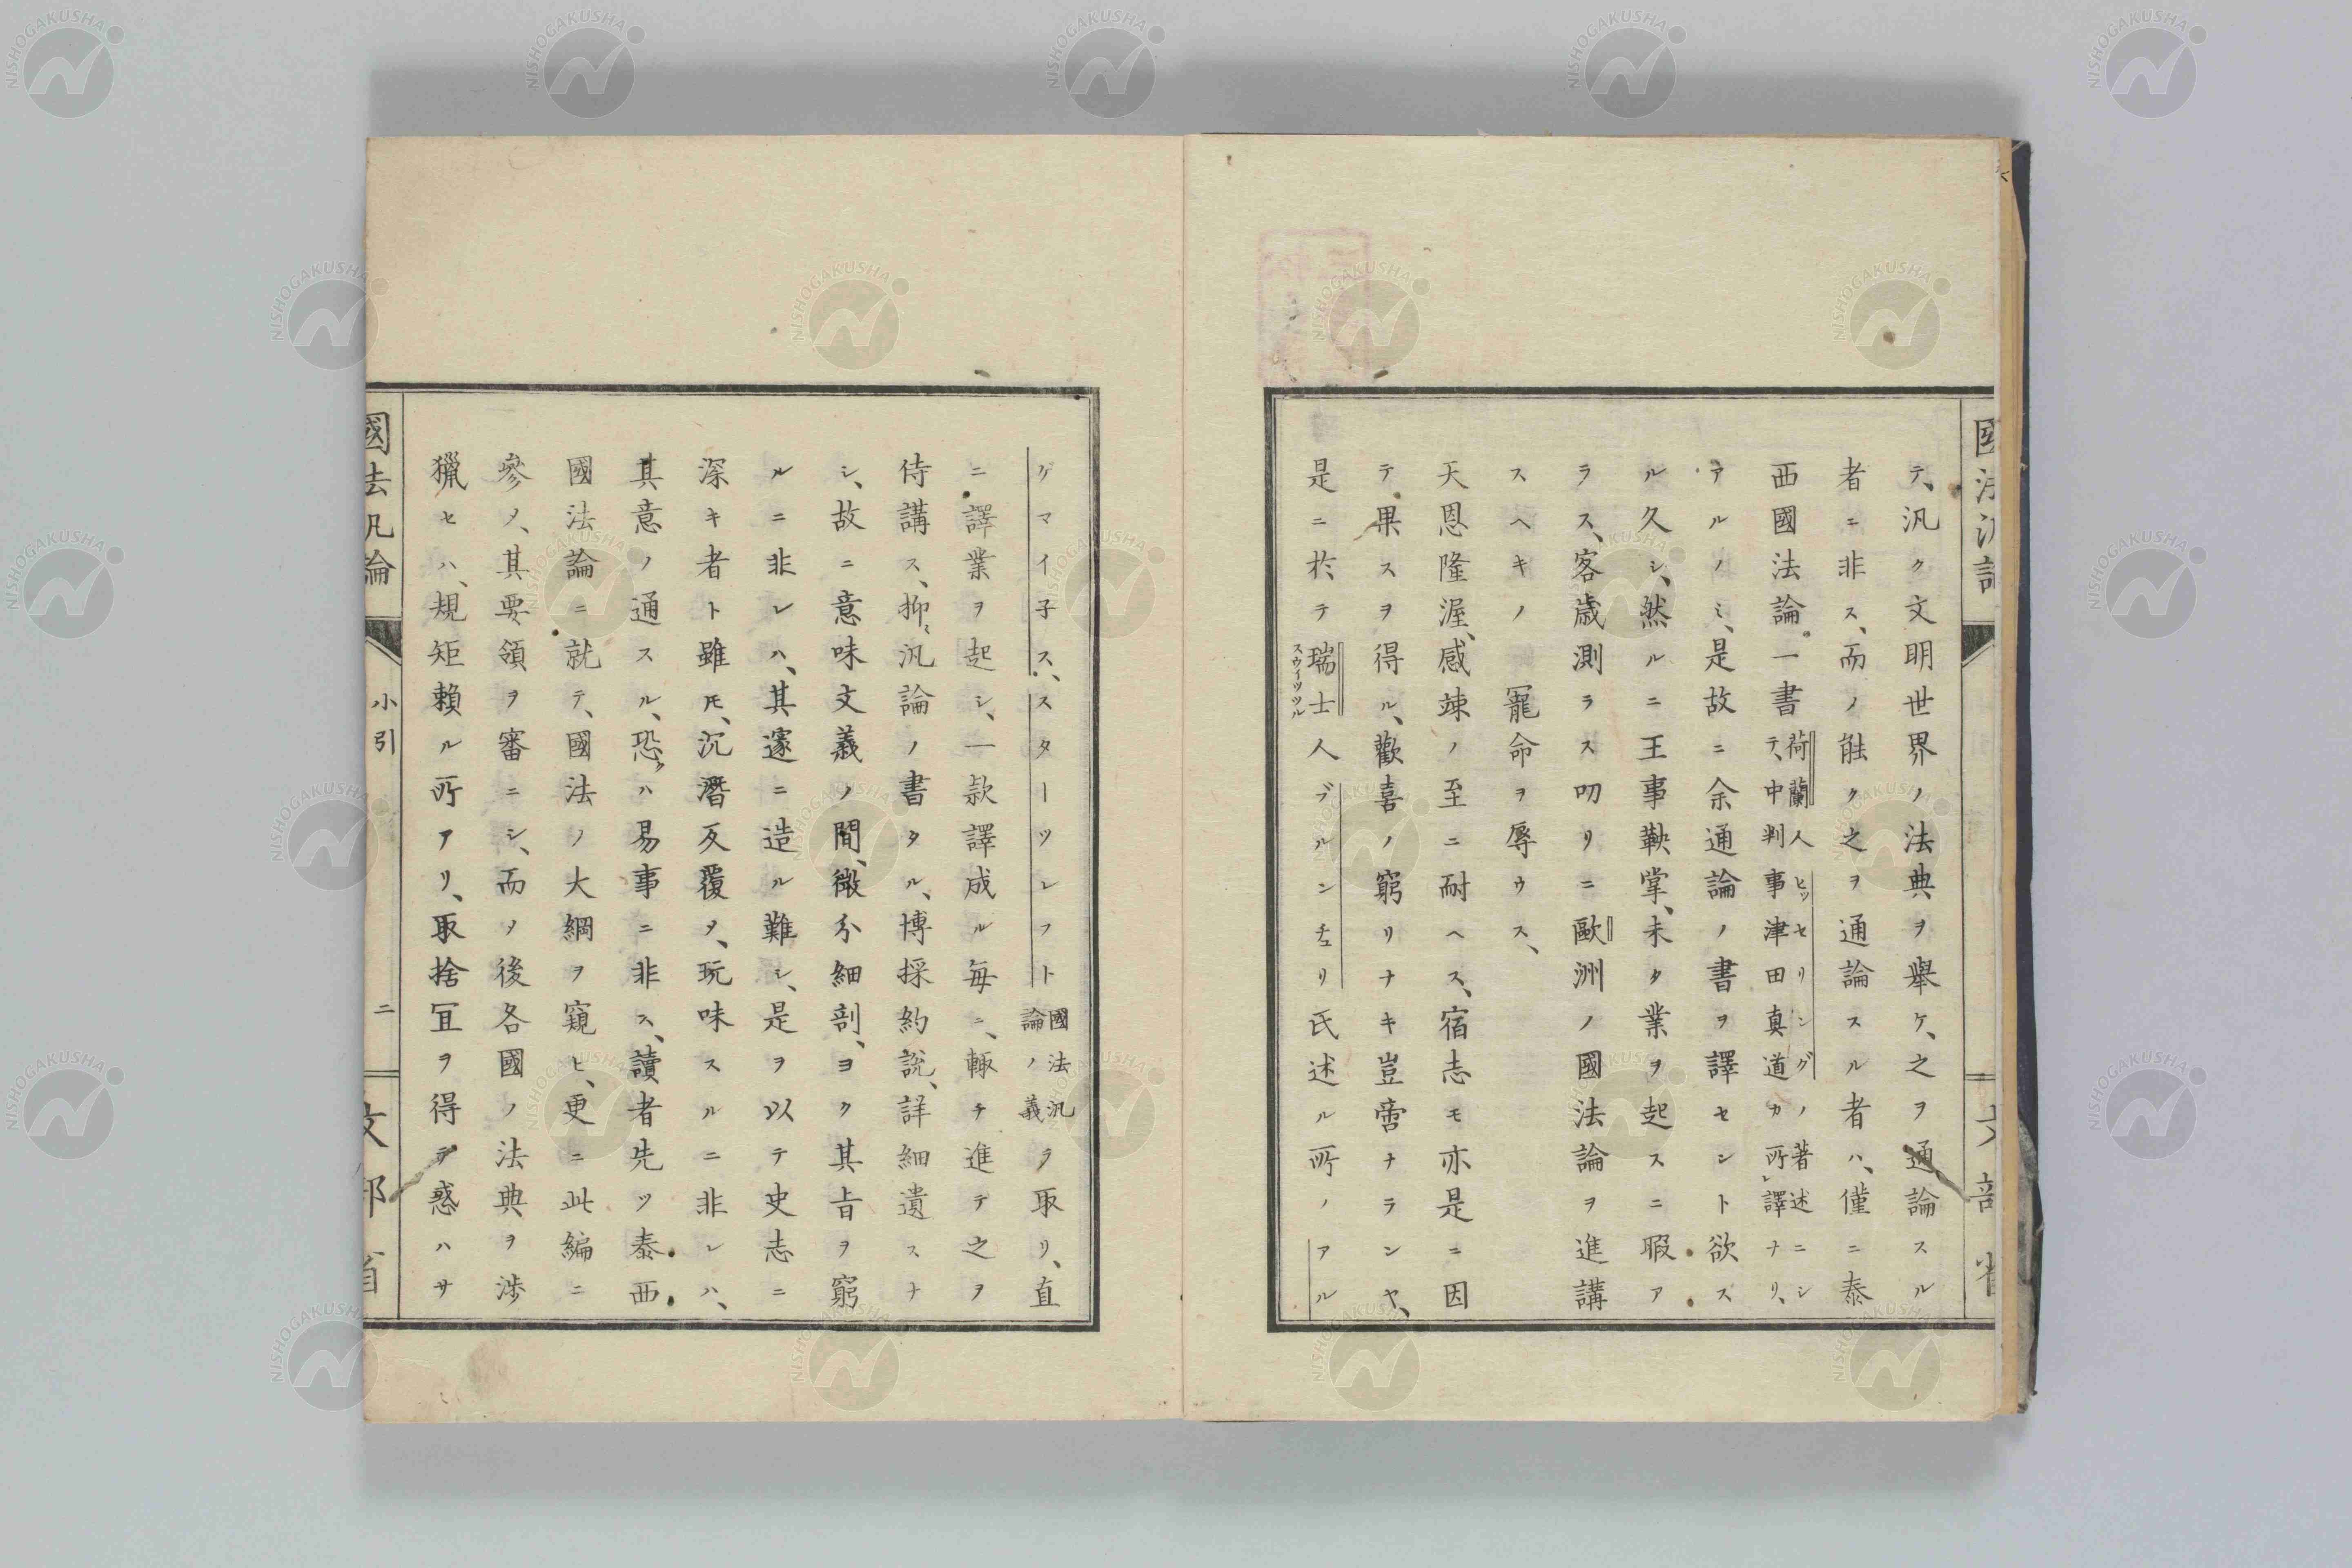 テ、汎ク文明世界ノ法典ヲ舉ケ、之ヲ通論スル
者ニ非ス、而ノ能ク之ヲ通論スル者ハ、僅ニ泰
西國法論一書荷蘭人ヒッセリングノ著述ニシテ、中判事津田真道カ所譯ナリ、
アルノミ、是故ニ余通論ノ書ヲ譯セント欲ス
ル久シ、然ルニ王事鞅掌、未タ業ヲ起スニ暇ア
ラス、客歳測ラス叨リニ歐洲ノ國法論ヲ進講
スヘキノ 寵命ヲ辱ウス、
天恩隆渥、感竦ノ至ニ耐ヘス、宿志モ亦是ニ因
テ果スヲ得ル、歡喜ノ窮リナキ豈啻ナランヤ、
是ニ於テ瑞士人ブルンチェリ氏述ル所ノアル
スウィツツル
ゲマイ子ス、スターツレフト國法汎論ノ義ヲ取リ、直
ニ譯業ヲ起シ、一款譯成ル毎ニ、輙チ進テ之ヲ
侍講ス、抑〻汎論ノ書タル、博採約説、詳細遺スナ
シ、故ニ意味文義ノ間、微分細剖、ヨク其旨ヲ窮
ルニ非レハ、其邃ニ造ル難シ、是ヲ以テ史志ニ
深キ者ト雖𪜈、沉潛反覆ノ、玩味スルニ非レハ、
其意ノ通スル、恐クハ易事ニ非ス、讀者先ツ泰西
國法論ニ就テ、國法ノ大綱ヲ窺ヒ、更ニ此編ニ
參ノ、其要領ヲ審ニシ、而ノ後各國ノ法典ヲ渉
獵セハ、規矩賴ル所アリ、取捨冝ヲ得テ惑ハサ
國法汎論
小引
二
文部省
NISHOGAKUSHA